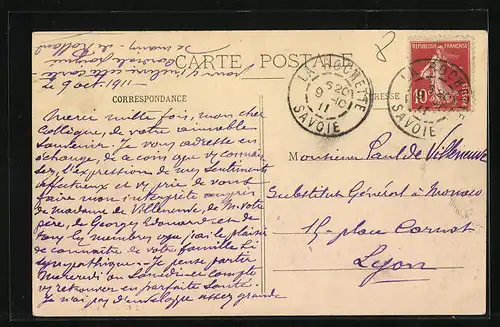 CARTE POSTALE
le 9 oct. 1911
CORRESPONDANCE
ADRESSE
LA ROCHETTE
9 - 10
11
SAVOIE
REPUBLIQUE FRANÇAISE
10
Merci mille fois, mon cher
Collègue, de votre aimable
souvenir. Je vous adresse en
échange, de ce coin que vs connais
sez, l'expression de mes sentiments
affectueux et vs prie de vous
faire mon interprète auprès
de madame de Villeneuve, de M. votre
père, de Georges Edouard et de
tous les membres que j'ai le plaisir
de connaître de votre famille si
sympathique - Je pense partir
Mercredi ou Samedi et compte
vs retrouver en parfaite santé.
Je n'ai pas d'enveloppe assez grande
pour y mettre cette carte
Monsieur Paul de Villeneuve
Substitut Général à Monaco
15 place Carnot
Lyon
8